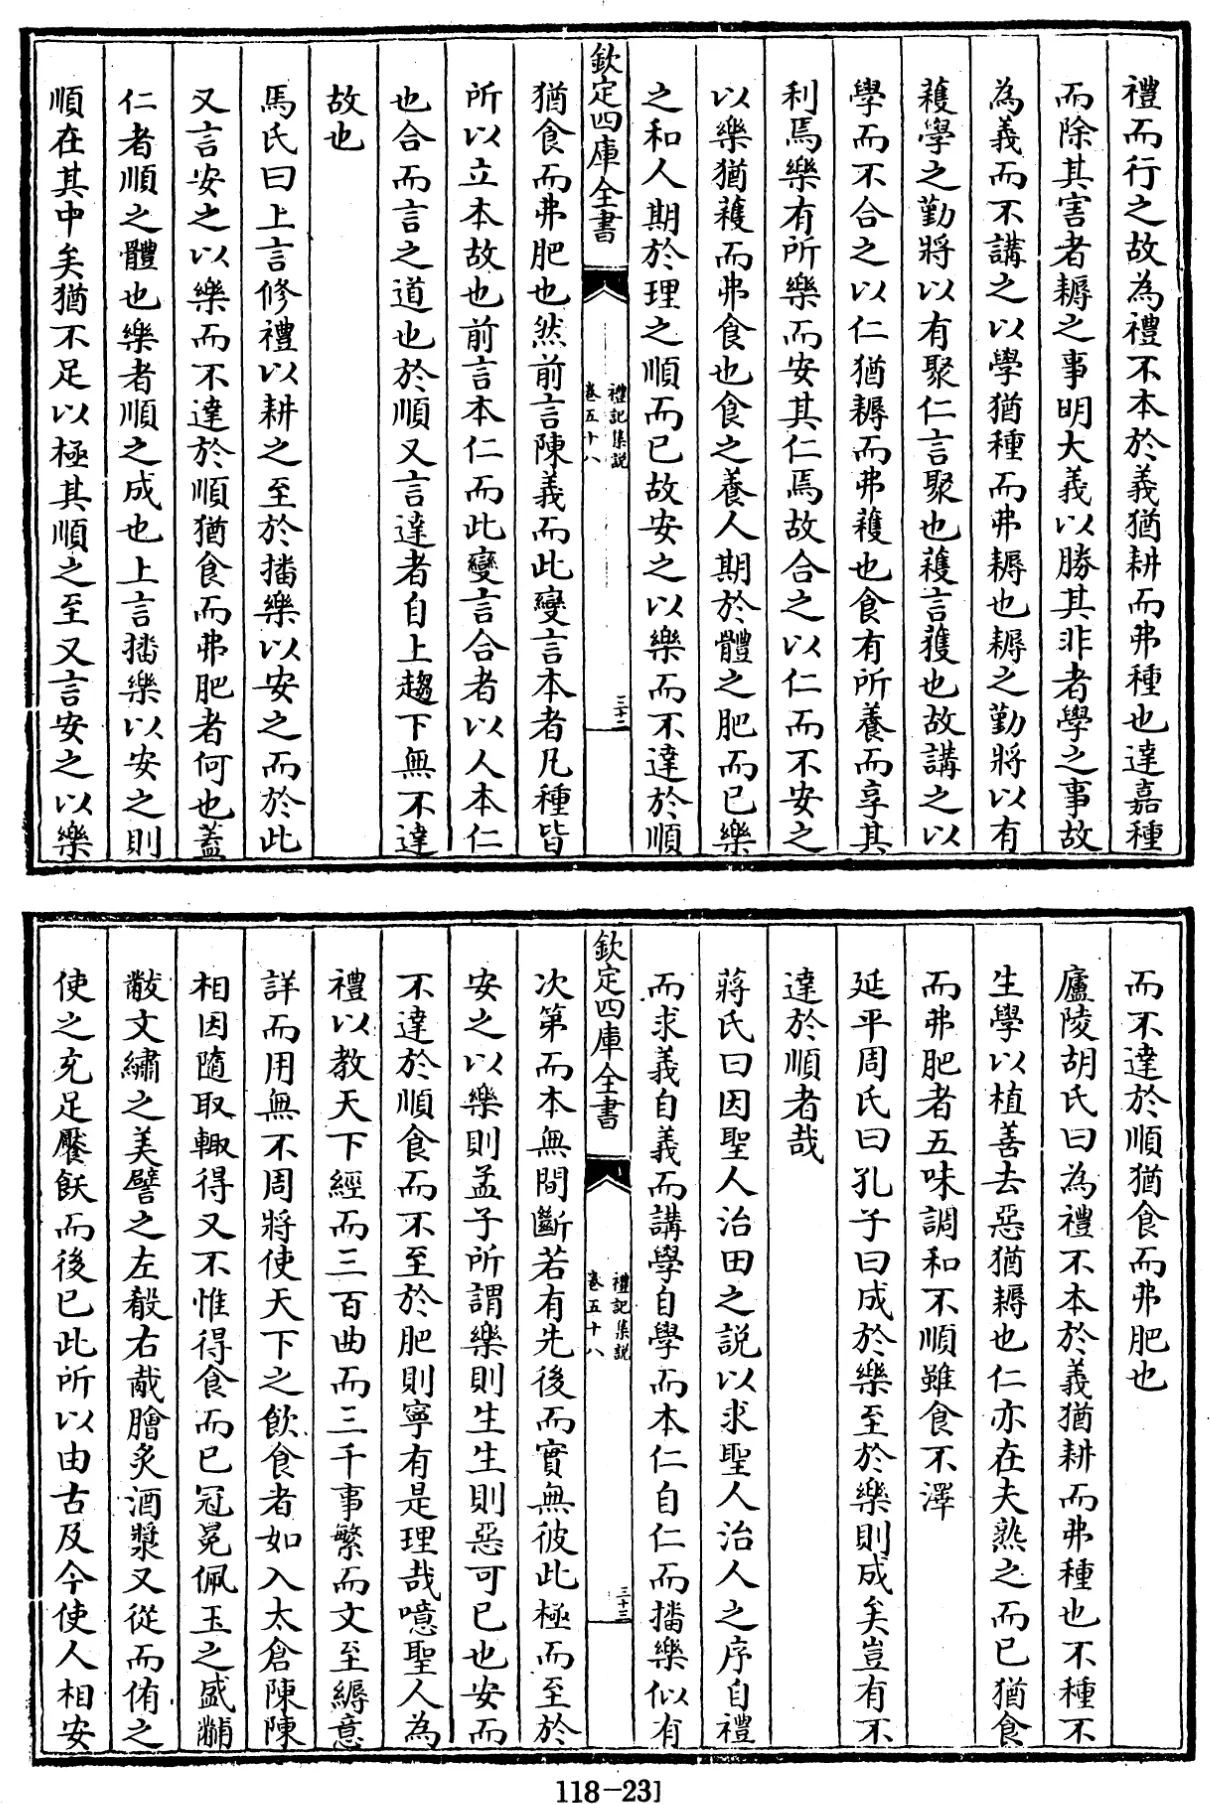 禮而行之故為禮不本於義猶耕而弗種也達嘉種
而除其害者耨之事明大義以勝其非者學之事故
為義而不講之以學猶種而弗耨也耨之勤將以有
穫學之勤將以有聚仁言聚也穫言獲也故講之以
學而不合之以仁猶耨而弗穫也食有所養而享其
利焉樂有所樂而安其仁焉故合之以仁而不安之
以樂猶穫而弗食也食之養人期於體之肥而已樂
之和人期於理之順而已故安之以樂而不達於順
欽定四庫全書
禮記集説
卷五十八
三十二
猶食而弗肥也然前言陳義而此變言本者凡種皆
所以立本故也前言本仁而此變言合者以人本仁
也合而言之道也於順又言達者自上趨下無不達
故也
馬氏曰上言修禮以耕之至於播樂以安之而於此
又言安之以樂而不達於順猶食而弗肥者何也蓋
仁者順之體也樂者順之成也上言播樂以安之則
順在其中矣猶不足以極其順之至又言安之以樂
而不達於順猶食而弗肥也
廬陵胡氏曰為禮不本於義猶耕而弗種也不種不
生學以植善去惡猶耨也仁亦在夫熟之而已猶食
而弗肥者五味調和不順雖食不澤
延平周氏曰孔子曰成於樂至於樂則成矣豈有不
達於順者哉
蔣氏曰因聖人治田之説以求聖人治人之序自禮
而求義自義而講學自學而本仁自仁而播樂似有
欽定四庫全書
禮記集説
卷五十八
三十三
次第而本無間斷若有先後而實無彼此極而至於
安之以樂則孟子所謂樂則生生則惡可已也安而
不達於順食而不至於肥則寧有是理哉噫聖人為
禮以教天下經而三百曲而三千事繁而文至縟意
詳而用無不周將使天下之飲食者如入太倉陳陳
相因隨取輒得又不惟得食而已冠冕佩玉之盛黼
黻文繡之美譬之左殽右胾膾炙酒漿又從而侑之
使之充足饜飫而後已此所以由古及今使人相安
118-231